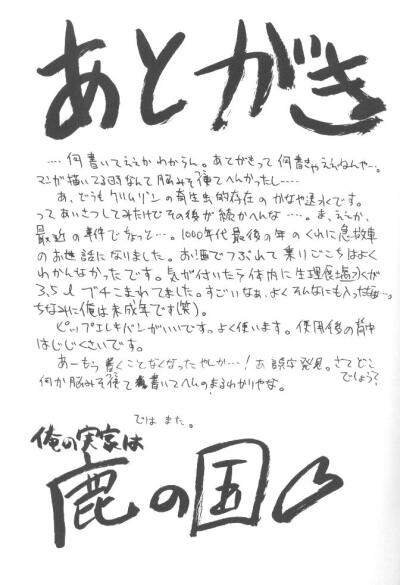 あとがき
‥‥何書いてええかわからん。あとがきって何書きゃええねんやー。
マンガ描いてる時なんて脳みそ使てへんかったし‥‥
あ、どうもクリムゾンの寄生虫的存在のかなや
です。
ってあいさつしてみたけどその後が続かへんな‥‥。ま、ええか、
最近の事件でちょっと…。1000年代最後の年のくれに急救車
のお世話になりました。お酒でつぶれて乗りごこちはよく
わかんなかったです。気が付いたら体内に生理食塩水が
3.5ℓブチこまれてました。すごいなぁ、よくそんなにも入った
ちなみに俺は未成年です(笑)。
ピップエレキバンがいいです。よく使います。使用後の背中
はじじくさいです。
あーもう書くことなくなったやしか…!あ 誤な発見。さてどこ
でしょう?
何か脳みそ使て書いてヘんのまるわかりやな。
ではまた。
俺の実家は
鹿の国